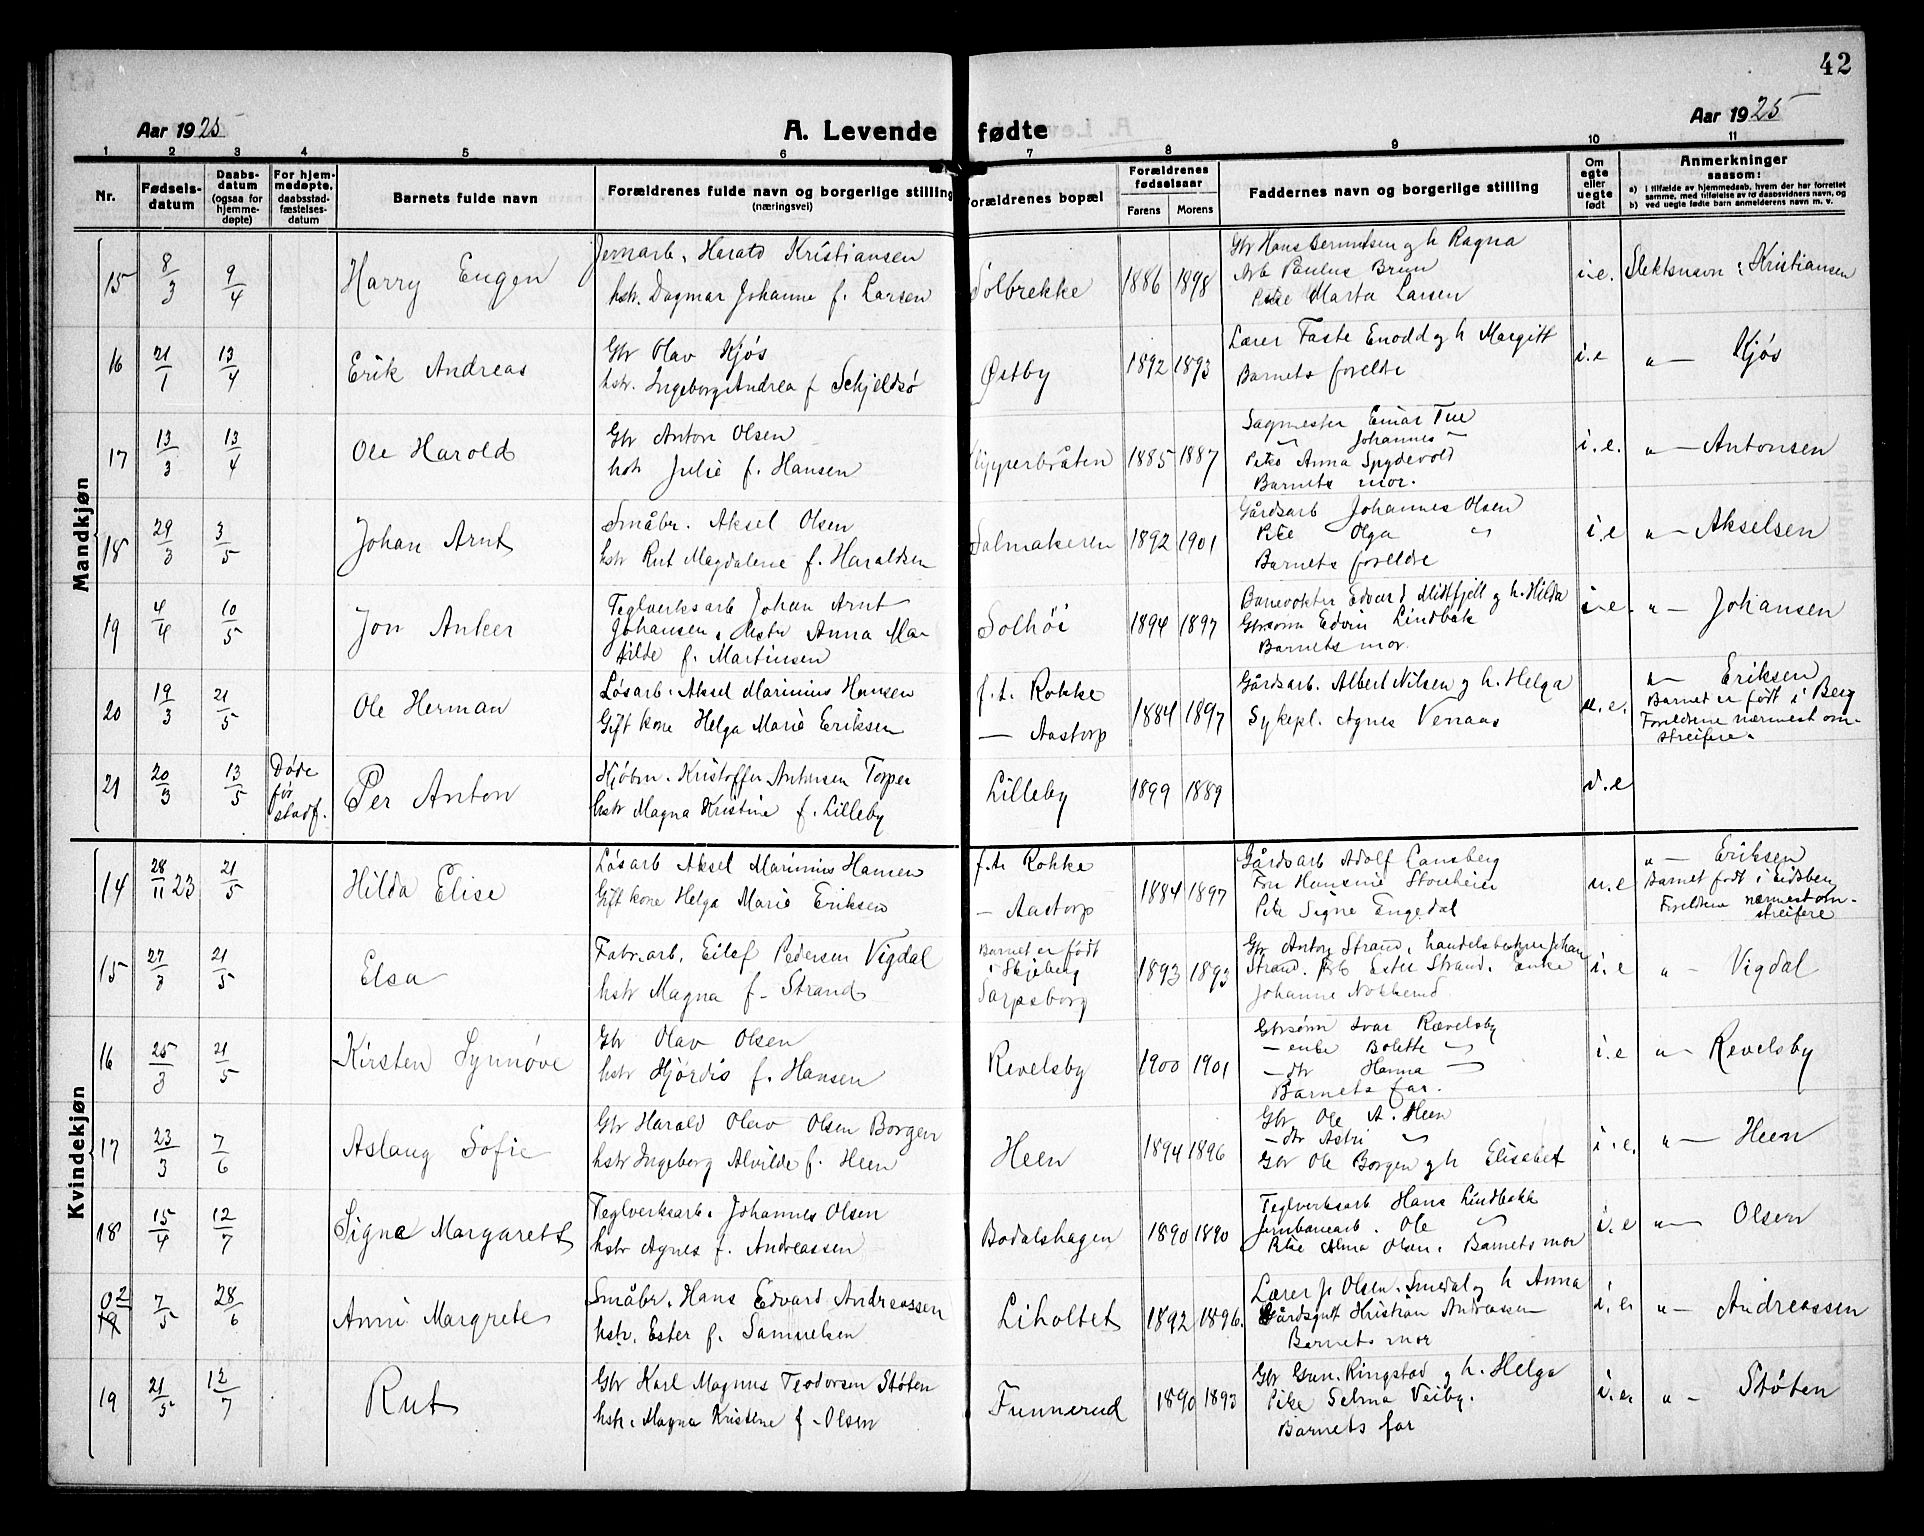 42
Aar 1925
A. Levende fødte
Aar 1925
1 2 3 4 5 6 7 8 9 10 11
Nr.
Fødsels-
datum
Daabs-
datum
(ogsaa for
hjemme-
døpte)
For hjem-
medøpte,
daabsstad-
fæstelses-
datum
Barnets fulde navn
Forældrenes fulde navn og borgerlige stilling
(næringsvei)
Forældrenes bopæl
Forældrenes
fødselsaar
Farens Morens
Faddernes navn og borgerlige stilling
Om
egte
eller
uegte
født
Anmerkninger
saasom:
a) i tilfælde av hjemmedaab, hvem der har forrettet
samme, med tilføielse av de daapsvidners navn, og
b) ved uegte fødte barn anmelderens navn m. v.
Mandkjøn
15 8/3 9/4 Harry Eugen
Jernarb. Harald Kristiansen
hstr. Dagmar Johanne f. Larsen
Solbrekke 1886 1898
Gbr Hans Berntsen og h Ragna
Arb Paulus Brun
Pike Marta Larsen
i.e. Slektsnavn: Kristiansen
16 21/1 13/4 Erik Andreas
Gbr Olav Kjøs
hstr. Ingeborg Andrea f Schjeldsø
Østby 1892 1893
Lærer Faste Enodd og h Margitt
Barnets foreldre
i.e " — Kjøs
17 13/3 13/4 Ole Harold
Gbr Anton Olsen
hstr Julie f. Hansen
Kypperbråten 1885 1887
Sagmester Einar Tue
" Johannes "
Pike Anna Spydevold
Barnets mor.
i.e. " — Antonsen
18 29/3 3/5 Johan Arnt
Småbr. Aksel Olsen
hstr Rut Magdalene f. Haraldsen
Salmakeren 1892 1901
Gårdsarb Johannes Olsen
Pike Olga "
Barnets foreldre
i.e " — Akselsen
19 4/4 10/5 Jon Anker
Teglverksarb Johan Arnt
Johansen, hstr Anna Ma-
tilde f. Martinsen
Solhöi 1894 1897
Banevokter Edvard Midtfjell og h. Hilda
Gbrsønn Edvin Lindbæk
Barnets mor
i.e. " — Johansen
20 19/3 21/5 Ole Herman
Løsarb. Aksel Marinius Hansen
Gift kone Helga Marie Eriksen
f.t. Rokke
— Aastorp
1884 1897
Gårdsarb. Albert Nilsen og h. Helga
Sykepl. Agnes Venaas
u.e. " — Eriksen
Barnet er født i Berg
Foreldrene nærmest om-
streifere.
21 20/3 13/5 Døde
før
stadf.
Per Anton
Kjøbm. Kristoffer Antonsen Torper
hstr Magna Kristine f. Lilleby
Lilleby 1899 1889 i.e
Kvindekjøn
14 28/11 23 21/5 Hilda Elise
Løsarb Aksel Marinius Hansen
Gift kone Helga Marie Eriksen
f.t. Rokke
— Aastorp
1884 1897
Gårdsarb Adolf Lansberg
Fru Hansine Storeheier
Pike Signe Engedal
u.e " — Eriksen
Barnet født i Eidsberg
Foreldrene nærmest om-
streifere
15 27/3 21/5 Elsa
Fabr.arb. Eilef Pedersen Vigdal
hstr Magna f. Strand
Barnet er født
i Skjeberg
Sarpsborg
1893 1893
Gbr Anton Strand, handelsbestyrer Johan
Strand. Pike Ester Strand. Enke
Johanne Nokkerud
i.e " — Vigdal
16 25/3 21/5 Kirsten Synnøve
Gbr Olav Olsen
hstr Hjördis f. Hansen
Revelsby 1900 1901
Gbrsønn Ivar Rævelsby
— enke Bolette "
— dtr Hanna "
Barnets far.
i.e " — Revelsby
17 23/3 7/6 Aslaug Sofie
Gbr Harald Olav Olsen Borgen
hstr Ingeborg Alvilde f. Heen
Heen 1894 1896
Gbr Ole A. Heen
— dtr Astri "
Gbr Ole Borgen og h Elisabet
i.e. " — Heen
18 15/4 12/7 Signe Margarett
Teglverksarb. Johannes Olsen
hstr Agnes f. Andreassen
Bodalshagen 1890 1890
Teglverksarb Hans Lindbekk
Jernbanearb. Ole "
Pike Alma Olsen. Barnets mor
i.e " — Olsen
02
19 7/5 28/6 Anni Margrete
Småbr. Hans Edvard Andreassen
hstr. Ester f. Samuelsen
Liholtet 1892 1896.
Lærer Olsen Smedal og h Anna
Gårdsgutt Kristian Andreassen
Barnets mor
i.e. " — Andreassen
19 21/5 12/7 Rut
Gbr Karl Magnus Teodorsen Støten
hstr. Magna Kristine f. Olsen
Funnerud 1890 1893
Gbr Gun. Ringstad og h. Helga
Pike Selma Veiby.
Barnets far
i.e. " — Støten